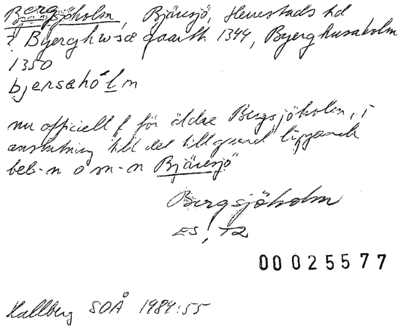 Bergsjöholm, Bjäresjö, Herrestads hd
? Byerghwsæ gaarth 1344, Byerghusaholm
1350
bjersəhólm
nu officiell f för äldre Bergsjöholm, i
anslutning till det till grund liggande
beb-n o sn-n Bjäresjö
Bergsjöholm
ES, T2
00025577
Hallberg SOÅ 1984:55